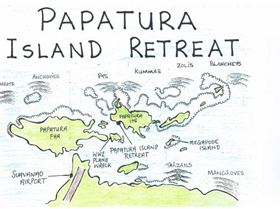 PAPATURA
ISLAND RETREAT
ANCHOVIES
PYS
KUMMAS
ZOLIS
BLANCHEYS
PAPATURA
FAA
PAPATURA
ITE
WW2
PLANE
WRECK
PAPATURA ISLAND
RETREAT
MEGAPODE
ISLAND
SUAVANAO
AIRPORT
TARZANS
MANGROVES